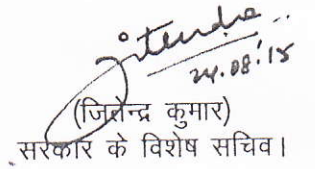 Jitendra
24.08.'15
(जितेन्द्र कुमार)
सरकार के विशेष सचिव।